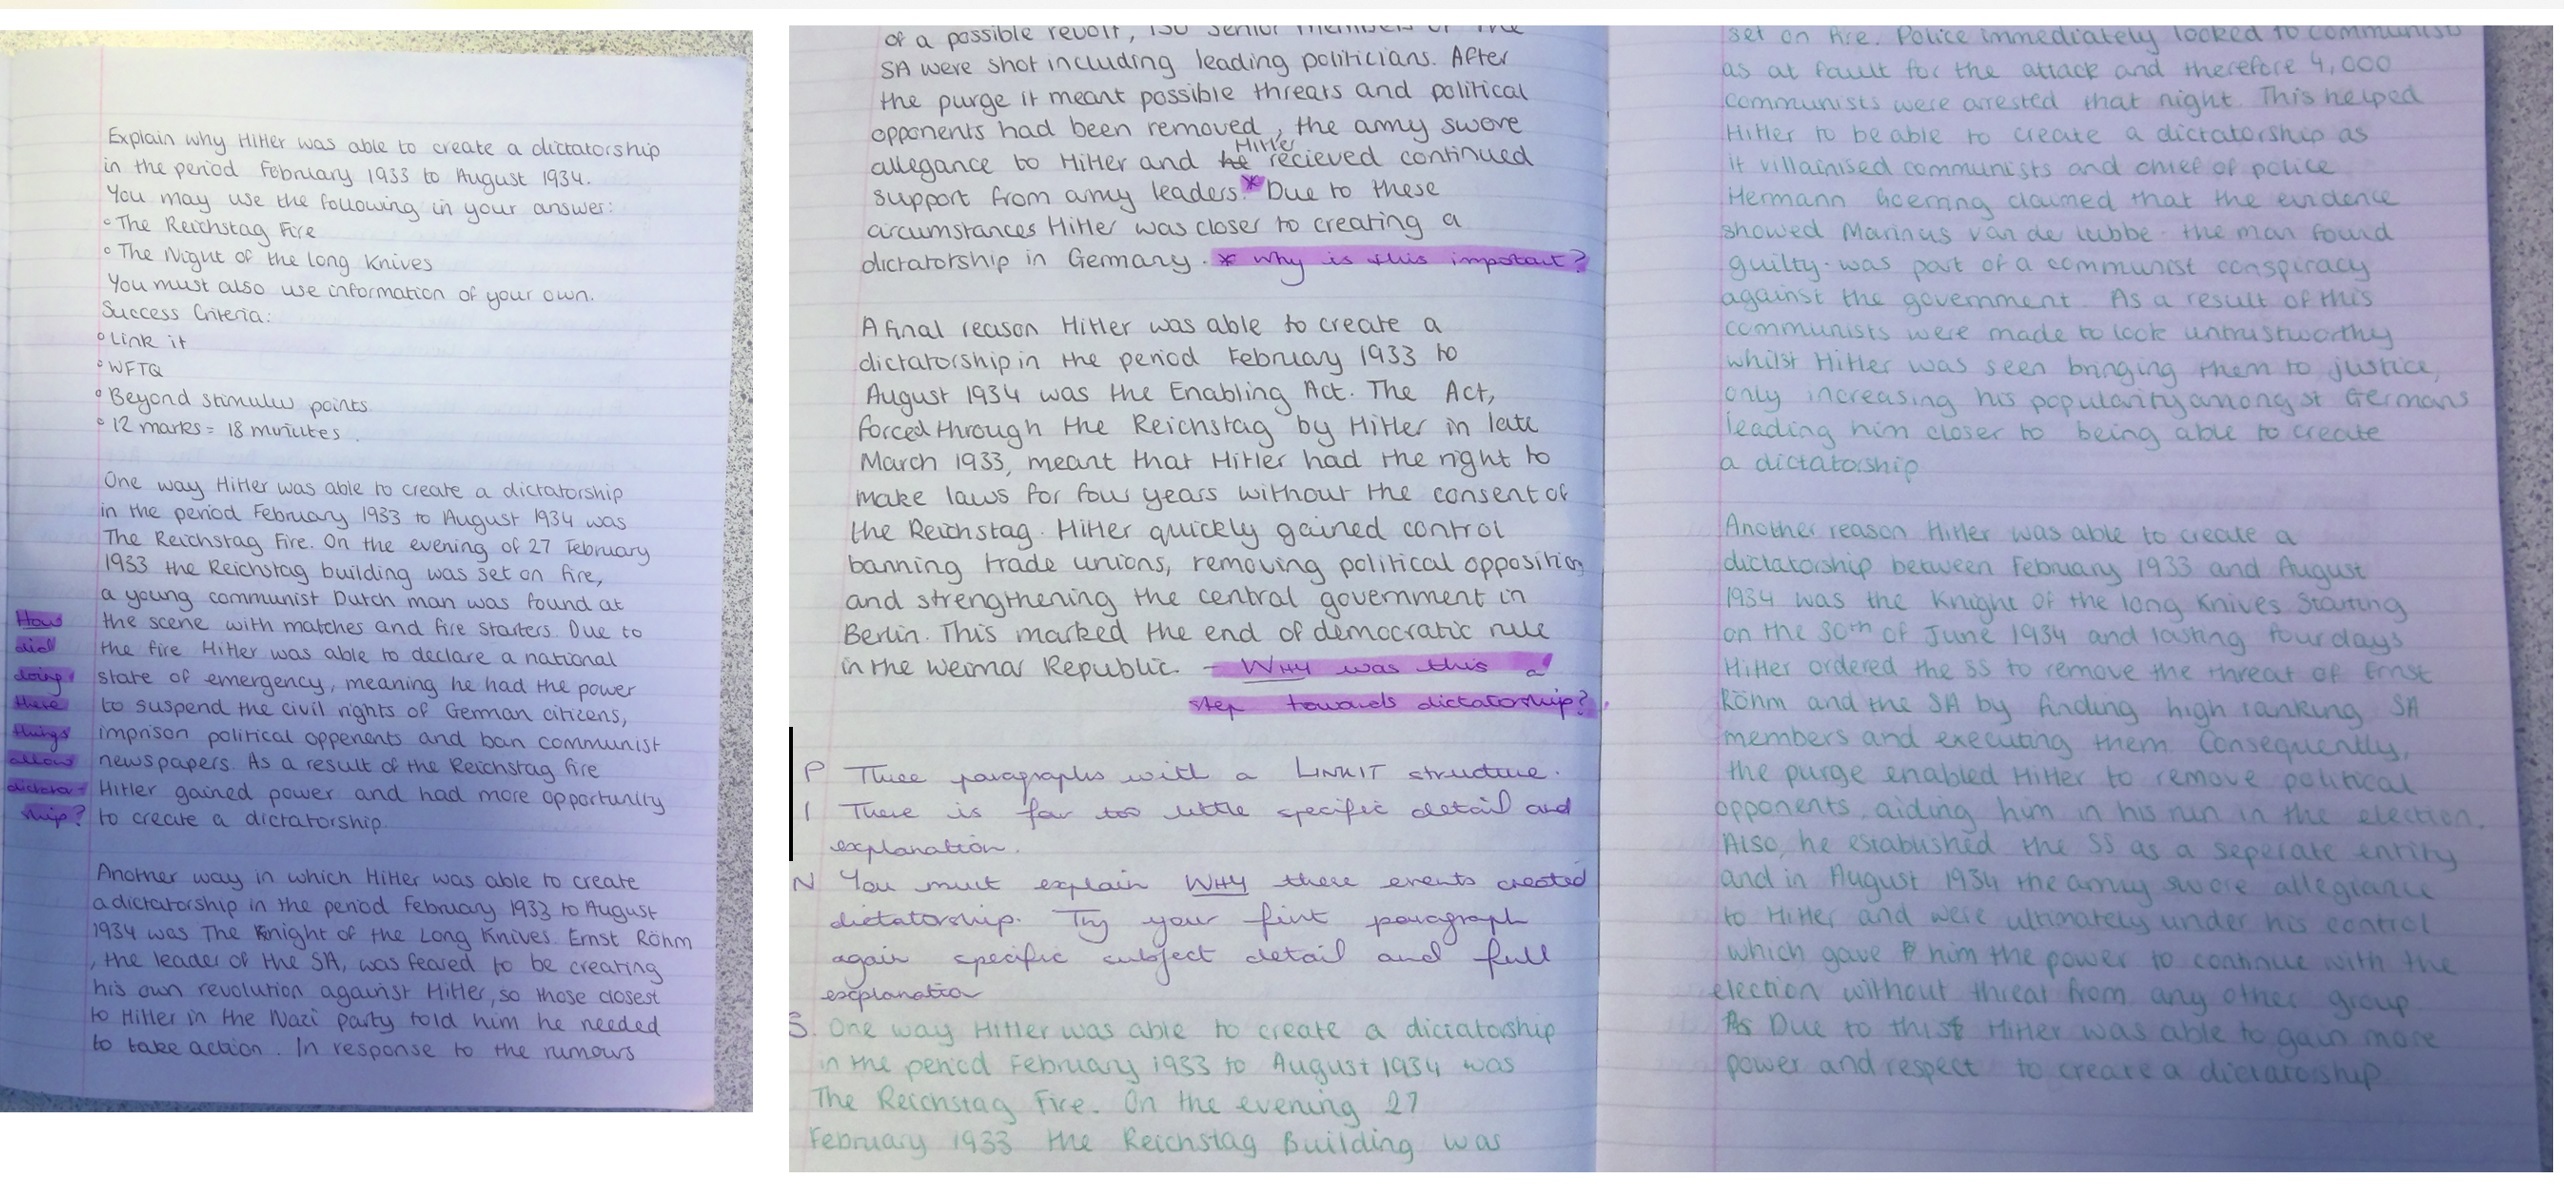 Explain why Hitler was able to create a dictatorship
in the period February 1933 to August 1934.
You may use the following in your answer:
° The Reichstag Fire
° The Night of the Long Knives
You must also use information of your own.
Success Criteria:
° Link it
° WFTQ
° Beyond stimulus points
° 12 marks = 18 minutes.
One way Hitler was able to create a dictatorship
in the period February 1933 to August 1934 was
The Reichstag Fire. On the evening of 27 February
1933 the Reichstag building was set on fire,
a young communist Dutch man was found at
the scene with matches and fire starters. Due to
the fire Hitler was able to declare a national
state of emergency, meaning he had the power
to suspend the civil rights of German citizens,
imprison political oppenents and ban communist
newspapers. As a result of the Reichstag fire
Hitler gained power and had more opportunity
to create a dictatorship.
How
did
doing
these
things
allow
dictator-
ship?
Another way in which Hitler was able to create
a dictatorship in the period February 1933 to August
1934 was The Knight of the Long Knives. Ernst Röhm
, the leader of the SA, was feared to be creating
his own revolution against Hitler, so those closest
to Hitler in the Nazi party told him he needed
to take action. In response to the rumours
of a possible revolt, 150 senior members of the
SA were shot including leading politicians. After
the purge it meant possible threats and political
opponents had been removed, the army swore
allegance to Hitler and he Hitler recieved continued
support from army leaders.* Due to these
circumstances Hitler was closer to creating a
dictatorship in Germany. * Why is this important?
A final reason Hitler was able to create a
dictatorship in the period February 1933 to
August 1934 was the Enabling Act. The Act,
forced through the Reichstag by Hitler in late
March 1933, meant that Hitler had the right to
make laws for four years without the consent of
the Reichstag. Hitler quickly gained control
banning trade unions, removing political opposition
and strengthening the central government in
Berlin. This marked the end of democratic rule
in the Weimar Republic. - WHY was this a
step towards dictatorship?
P Three paragraphs with a LINKIT structure.
I There is far too little specific detail and
explanation.
N You must explain WHY these events created
dictatorship. Try your first paragraph
again specific subject detail and full
explanation
S. One way Hitler was able to create a dictatorship
in the period February 1933 to August 1934 was
The Reichstag Fire. On the evening 27
February 1933 the Reichstag Building was
set on fire. Police immediately looked to communists
as at fault for the attack and therefore 4,000
communists were arrested that night. This helped
Hitler to be able to create a dictatorship as
it villainised communists and chief of police
Hermann Goerring claimed that the evidence
showed Marinus van de lubbe - the man found
guilty - was part of a communist conspiracy
against the government. As a result of this
communists were made to look untrustworthy
whilst Hitler was seen bringing them to justice,
only increasing his popularity amongst Germans
leading him closer to being able to create
a dictatorship
Another reason Hitler was able to create a
dictatorship between February 1933 and August
1934 was the Knight of the long Knives Starting
on the 30th of June 1934 and lasting four days
Hitler ordered the SS to remove the threat of Ernst
Röhm and the SA by finding high ranking SA
members and executing them. Consequently,
the purge enabled Hitler to remove political
opponents, aiding him in his run in the election.
Also, he established the SS as a seperate entity
and in August 1934 the army swore allegiance
to Hitler and were ultimately under his control
which gave him the power to continue with the
election without threat from any other group
As Due to this Hitler was able to gain more
power and respect to create a dictatorship